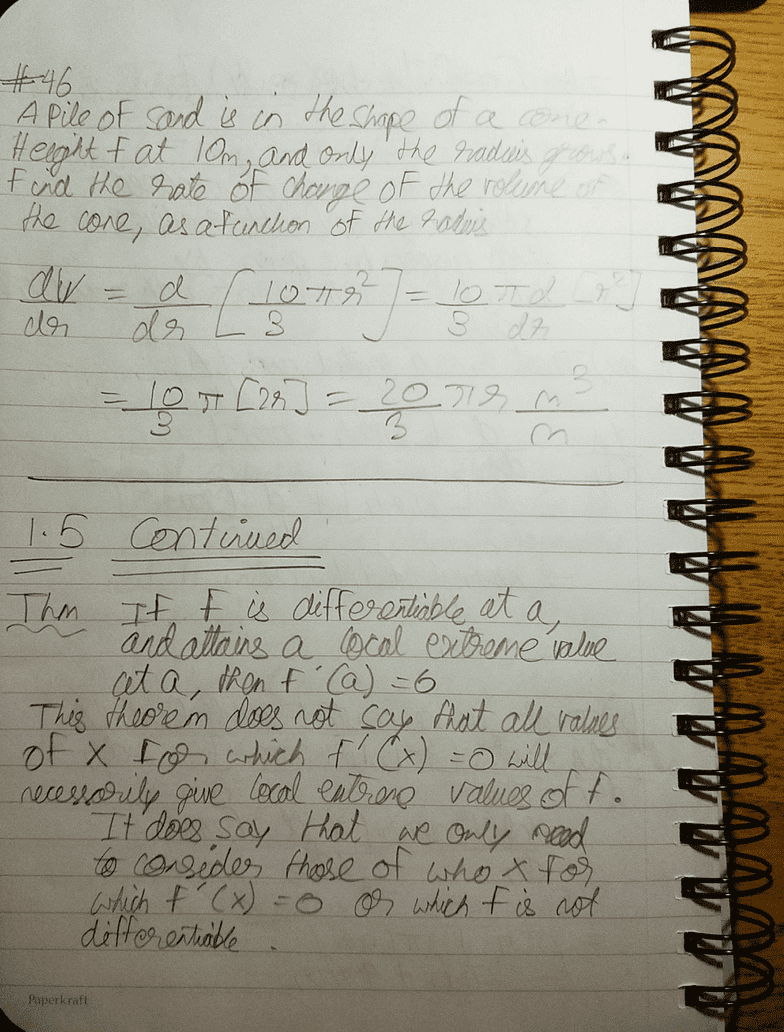 #46
A pile of sand is in the shape of a cone.
Height f at 10m, and only the radius grows.
Find the rate of change of the volume of
the cone, as a function of the radius
dV/dr = d/dr [10/3 πr²] = 10/3 π d/dr [r²]
= 10/3 π [2r] = 20/3 πr m³/m
1.5 Continued
Thm If f is differentiable at a,
and attains a local extreme value
at a, then f'(a) = 0
This theorem does not say that all values
of x for which f'(x) = 0 will
necessarily give local extreme values of f.
It does say that we only need
to consider those of who x for
which f'(x) = 0 or which f is not
differentiable.
Paperkraft